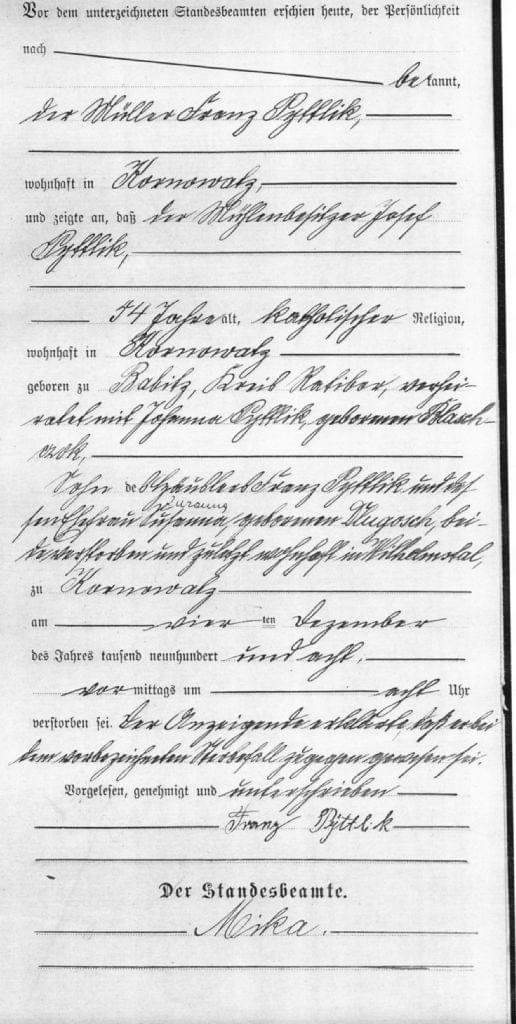 Vor dem unterzeichneten Standesbeamten erschien heute, der Persönlichkeit
nach
bekannt,
der Müller Franz Pyttlik,
wohnhaft in Kornowatz,
und zeigte an, daß der Mühlenbesitzer Josef
Pyttlik,
54 Jahre alt, katholischer Religion,
wohnhaft in Kornowatz
geboren zu Babitz, Kreis Ratibor, verhei-
ratet mit Johanna Pyttlik, geborenen Blasch-
Sohn des Häuslers Franz Pyttlik und des-
sen Ehefrau Susanna, geborenen Dlugosch, bei-
de verstorben und zuletzt wohnhaft in Wilhelmstal,
zu Kornowatz
am vier ten Dezember
des Jahres tausend neunhundert und acht,
vor mittags um acht Uhr
verstorben sei. Der Anzeigende erklärte, daß er bei
dem vorbezeichneten Sterbefall zugegen gewesen sei.
Vorgelesen, genehmigt und unterschrieben
Franz Pyttlik
Der Standesbeamte.
Mika.